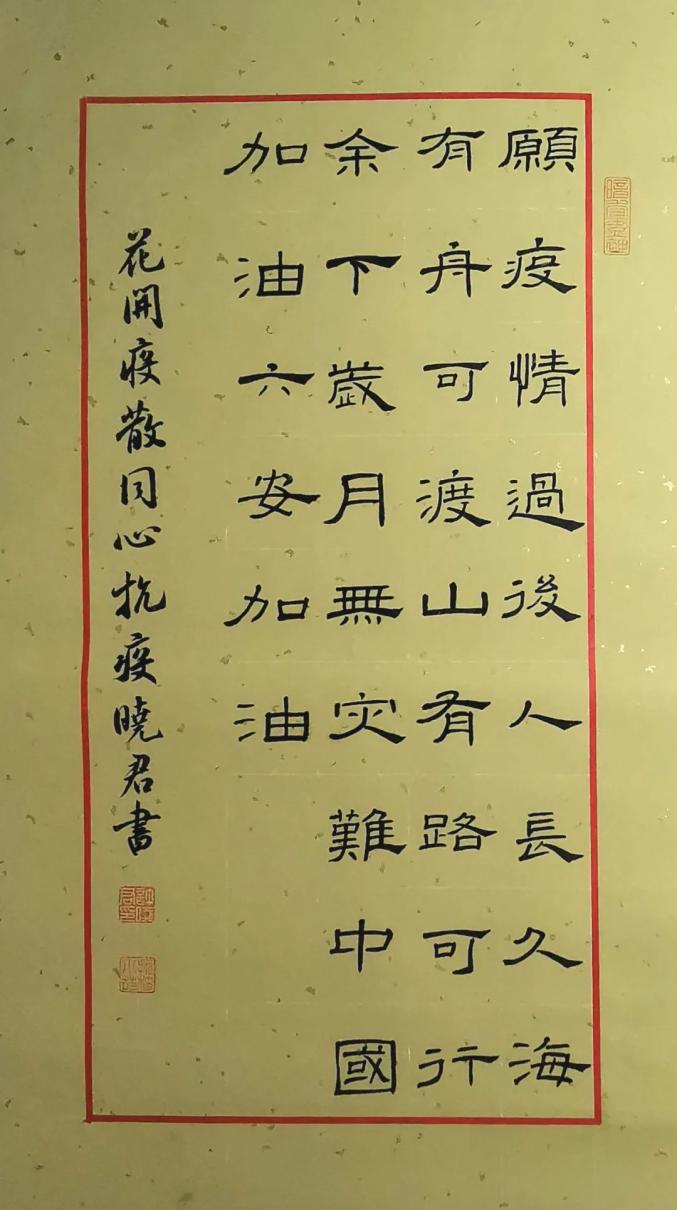 願疫情過後人長久海
有舟可渡山有路可行
余下歲月無灾難中國
加油六安加油
花開疫散同心抗疫曉君書